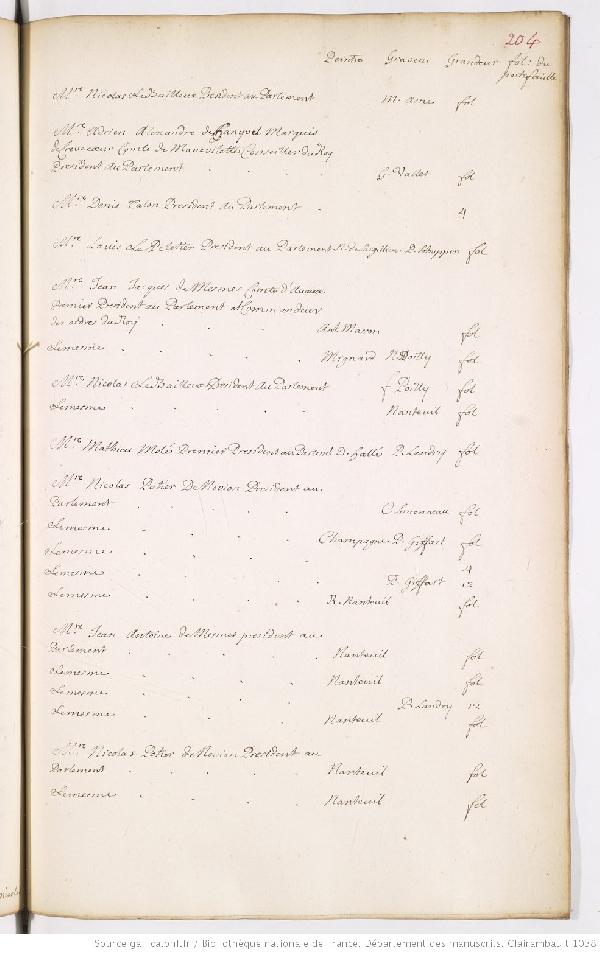 204
Peintre Graveur Grandeur fol: du
portefeuille
Mre Nicolas Le Bailleux President au Parlement M. asne fol
Mre Adrien Alexandre de Hanyvel Marquis
de Crevecoeur Comte de Manevilette Conseiller du Roy
President du Parlement G. Vallet fol
Mre Denis Talon President au Parlement 4
Mre Louis Le Peletier President au Parlement P. Schuppen fol
Mre Jean Jacques de Mesmes Comte d'avaux
Dernier President au Parlement et Commandeur
des ordres du Roy Ant. Masson fol
Le mesme Mignard N. Poilly fol
Mre Nicolas Le Bailleux President du Parlement f Poilly fol
Le mesme Nanteuil fol
Mre Mathieu Molé Premier President au Parlemt De Hallé P. Landry fol
Mre Nicolas Potier De Novion President au
Parlement C. Simonneau fol
Le mesme Champagne P. Giffart fol
Le mesme 4
Le mesme P. Giffart 12
Le mesme R. Nanteuil fol
Mre Jean Antoine de Mesmes president au
Parlement Nanteuil fol
Le mesme Nanteuil fol
Le mesme P. Landry 12
Le mesme Nanteuil fol
Mre Nicolas Potier de Novion President au
Parlement Nanteuil fol
Le mesme Nanteuil fol
Source gallica.bnf.fr / Bibliothèque nationale de France. Département des manuscrits. Clairambault 1038